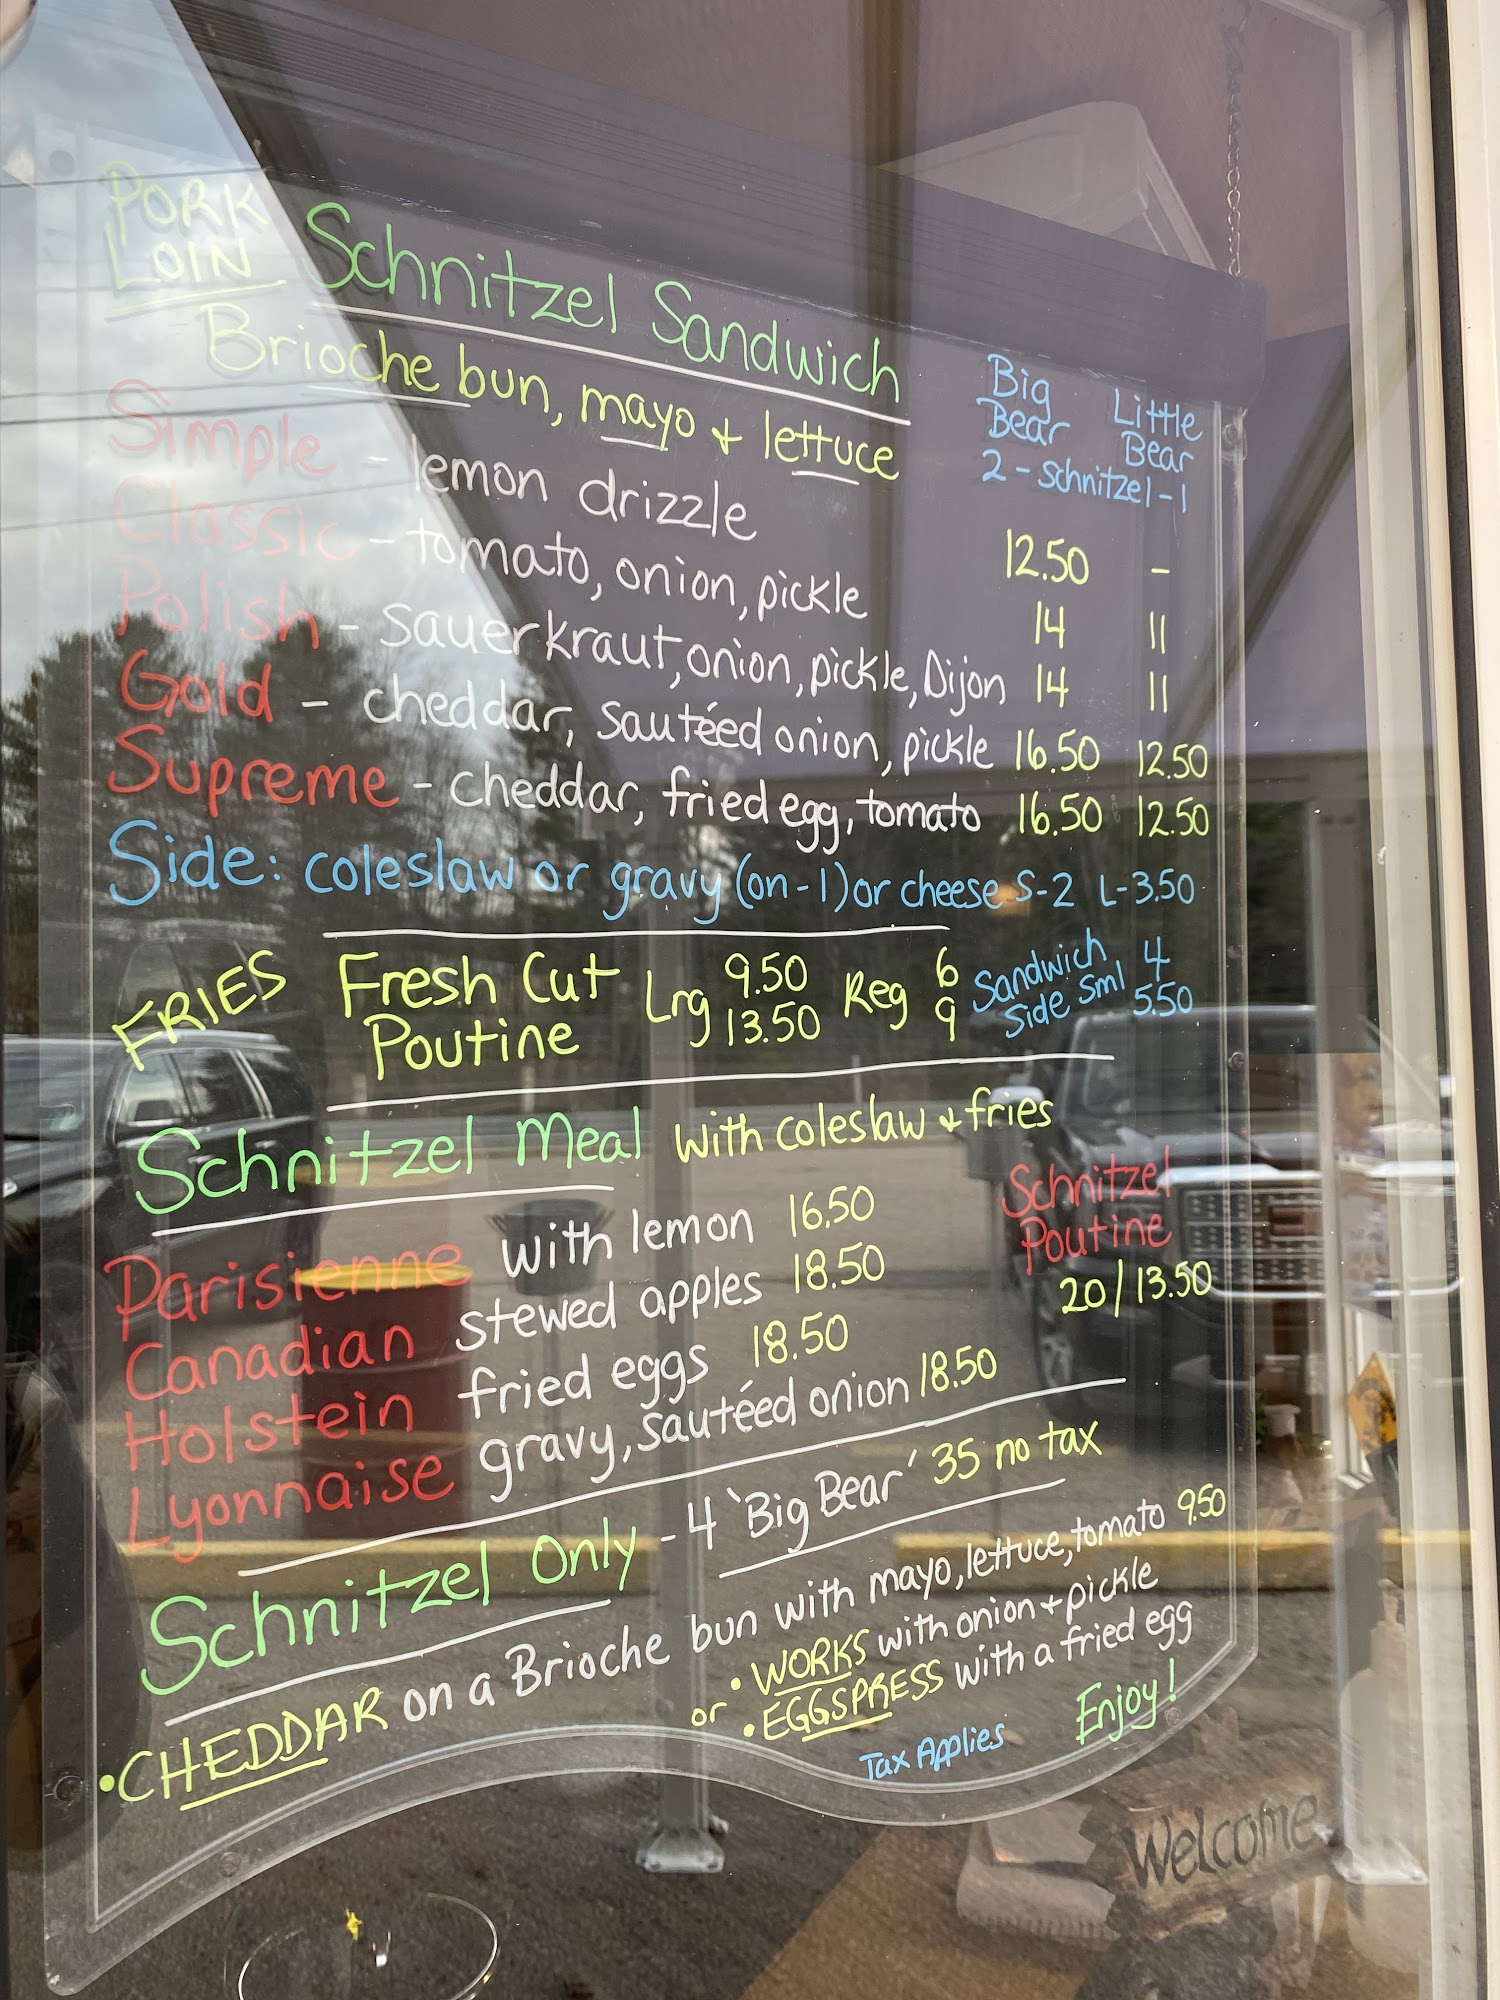 PORK LOIN Schnitzel Sandwich
Brioche bun, mayo + lettuce
Big Bear Little Bear
2 - Schnitzel - 1
Simple - lemon drizzle 12.50 -
Classic - tomato, onion, pickle 14 11
Polish - sauerkraut, onion, pickle, Dijon 14 11
Gold - cheddar, sautéed onion, pickle 16.50 12.50
Supreme - cheddar, fried egg, tomato 16.50 12.50
Side: coleslaw or gravy (on-1) or cheese S-2 L-3.50
FRIES Fresh Cut Lrg 9.50 Reg 6 Sandwich 4
Poutine 13.50 9 Side Sml 5.50
Schnitzel Meal with coleslaw + fries
Parisienne with lemon 16.50
Canadian stewed apples 18.50
Holstein fried eggs 18.50
Lyonnaise gravy, sautéed onion 18.50
Schnitzel
Poutine
20/13.50
Schnitzel Only - 4 'Big Bear' 35 no tax
• CHEDDAR on a Brioche bun with mayo, lettuce, tomato 9.50
or • WORKS with onion + pickle
• EGGSPRESS with a fried egg
Tax Applies Enjoy!
Welcome